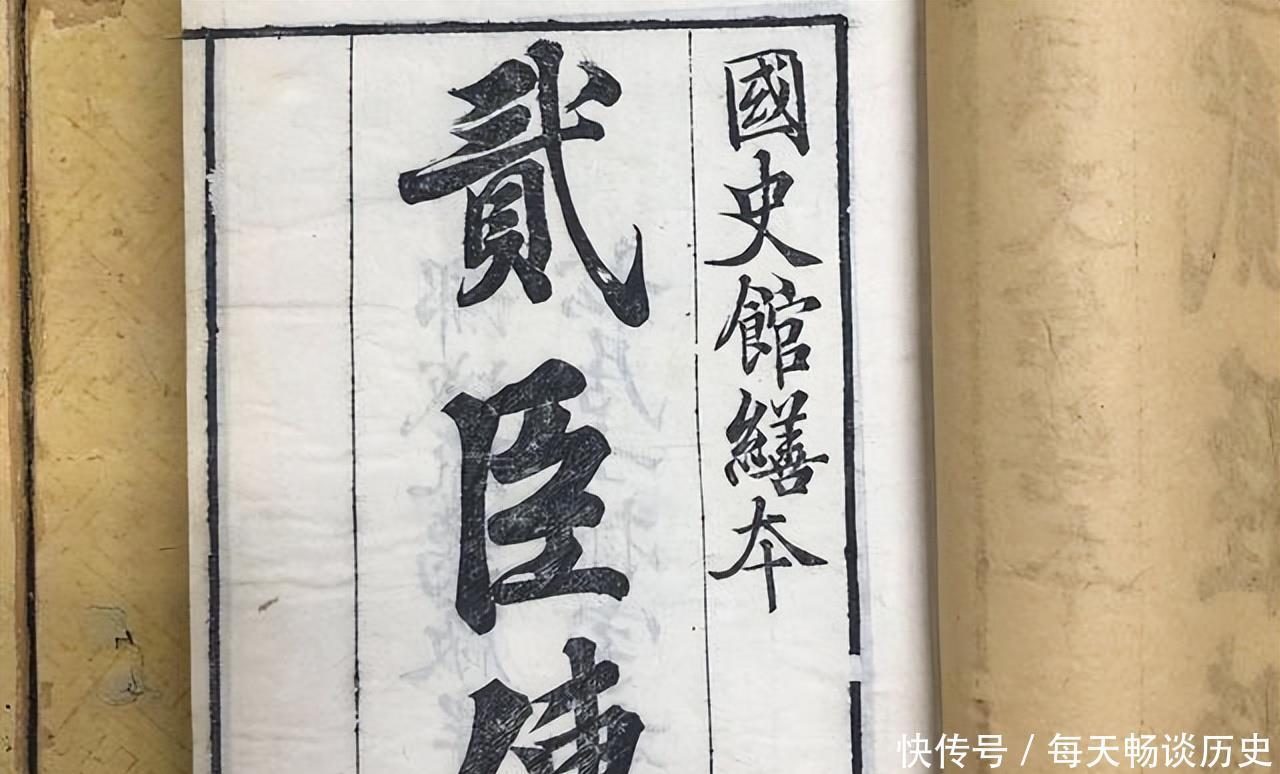 國史館繕本
貳臣傳
快传号 / 每天畅谈历史